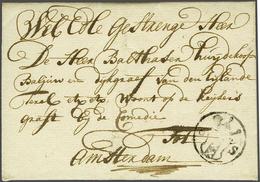 Wel Edle Gestrenge Heer
De Heer Balthasar Thuijdekoop
Baljuw en dijkgraef van den Eijlande
Texel etc etc Woont op de Keijsers
graft bij de Comedie
Tot
Amsterdam